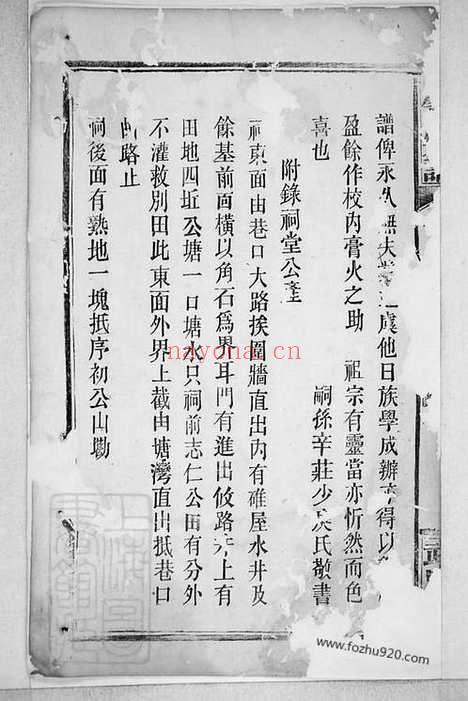 譜俾永久無失
虞他日族學成辦
得以
盈餘作校內膏火之助 祖宗有靈當亦忻然而色
喜也 嗣孫辛莊少
氏敬書
附錄祠堂公產
祠東面由巷口大路挨圍牆直出內有碓屋水井及
餘基前面橫以角石為界耳門有進出
路
上有
田地四坵公塘一口塘水只祠前志仁公田有分外
不灌救別田此東面外界上截由塘灣直出抵巷口
路止
祠後面有熟地一塊抵序初公山墈
nayona.cn
www.fozhu920.com